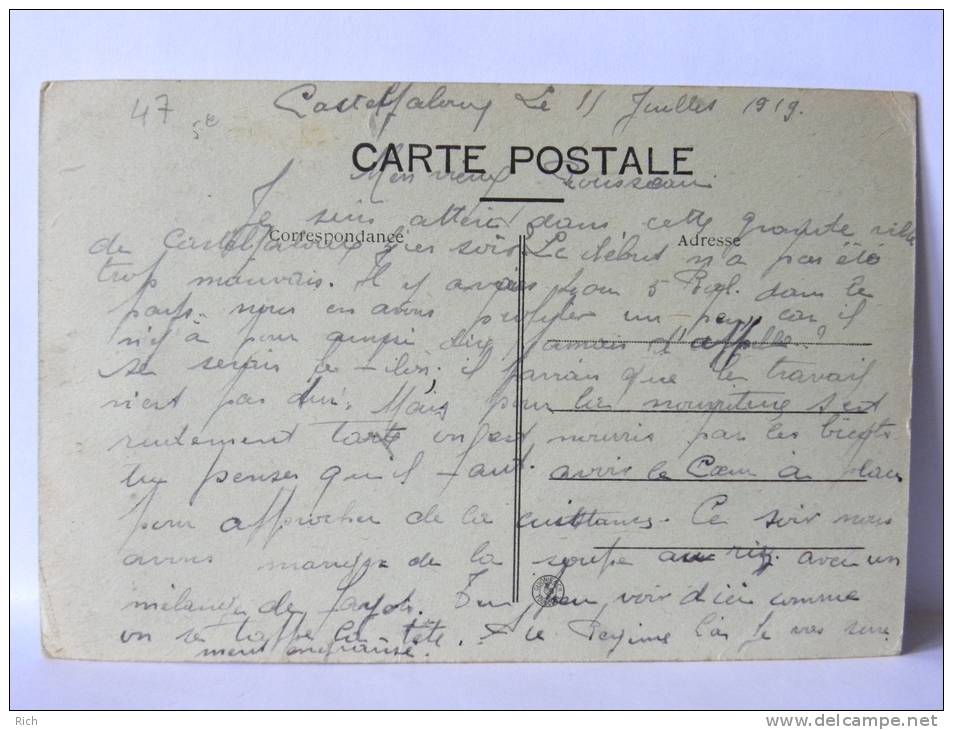 47
5e
Casteljaloux Le 11 Juillet 1919.
CARTE POSTALE
Mon vieux Rousseau
Je suis attéri dans cette grande ville
Correspondance
Adresse
de Casteljaloux hier soir. Le début n'a pas été
trop mauvais. Il y avais 5 dans le
pays. nous en avons profiter un peu car il
n'y à pour ainsi dire jamais d'appelle.?
Se serais le filon. il parrais que le travail
n'est pas dur. Mais pour la nourriture s'est
rudement tarte on est nourris par les
tu penses qu'il faut avoir le Cœur à place
pour approcher de la Ce soir nous
avons manger de la soupe au riz avec un
mélange de fayots. Tu peu voir d'ici comme
on se tappe la tête. A ce Regime la Je vas sure
ment engraissé.
Rich
www.delcampe.net